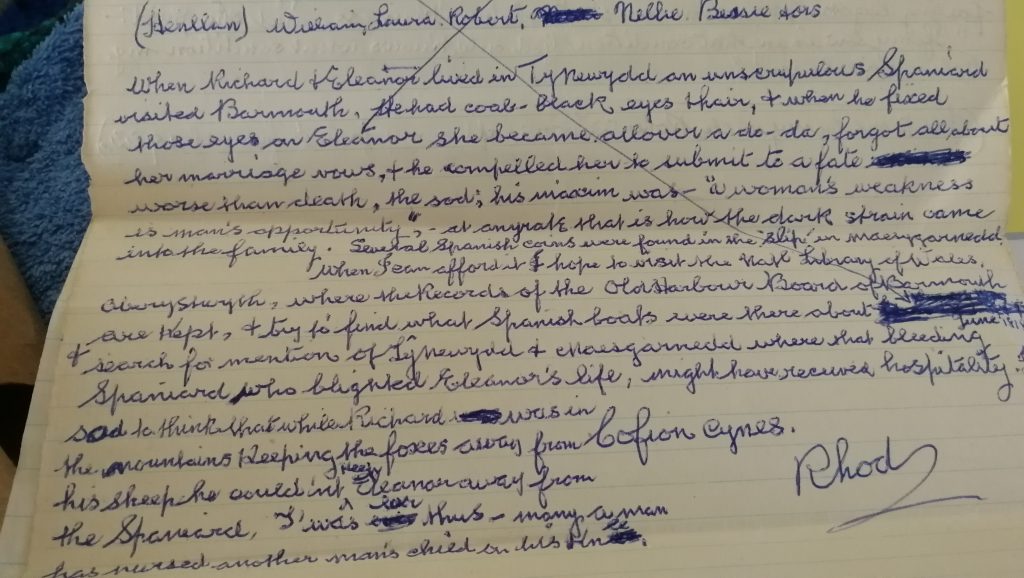 (Henllan) William, Laura. Robert, Nellie. Bessie Mrs
When Richard & Eleanor lived in Tynewydd an unscrupulous Spaniard
visited Barmouth. He had coal-black eyes & hair, & when he fixed
those eyes on Eleanor she became allover a do-da, forgot all about
her marriage vows, & he compelled her to submit to a fate
worse than death, the sod; his maxim was - "a woman's weakness
is man's opportunity", - at anyrate that is how the dark strain came
into the family. Several Spanish coins were found in the 'slip' in maesygarnedd.
When I can afford it I hope to visit the Nat Library of Wales,
aberystwyth, where the Records of the Old Harbour Board of Barmouth
are kept, & try to find what Spanish boats were there about June
& search for mention of Tynewydd & Maesgarnedd where that bleeding
Spaniard who blighted Eleanor's life, might have received hospitality.
sad to think that while Richard was in
the mountains keeping the foxes away from
his sheep he could'nt keep Eleanor away from
the Spaniard, T'was ever thus - many a man
has nursed another man's child on his knee.
Cofion Cynes.
Rhod